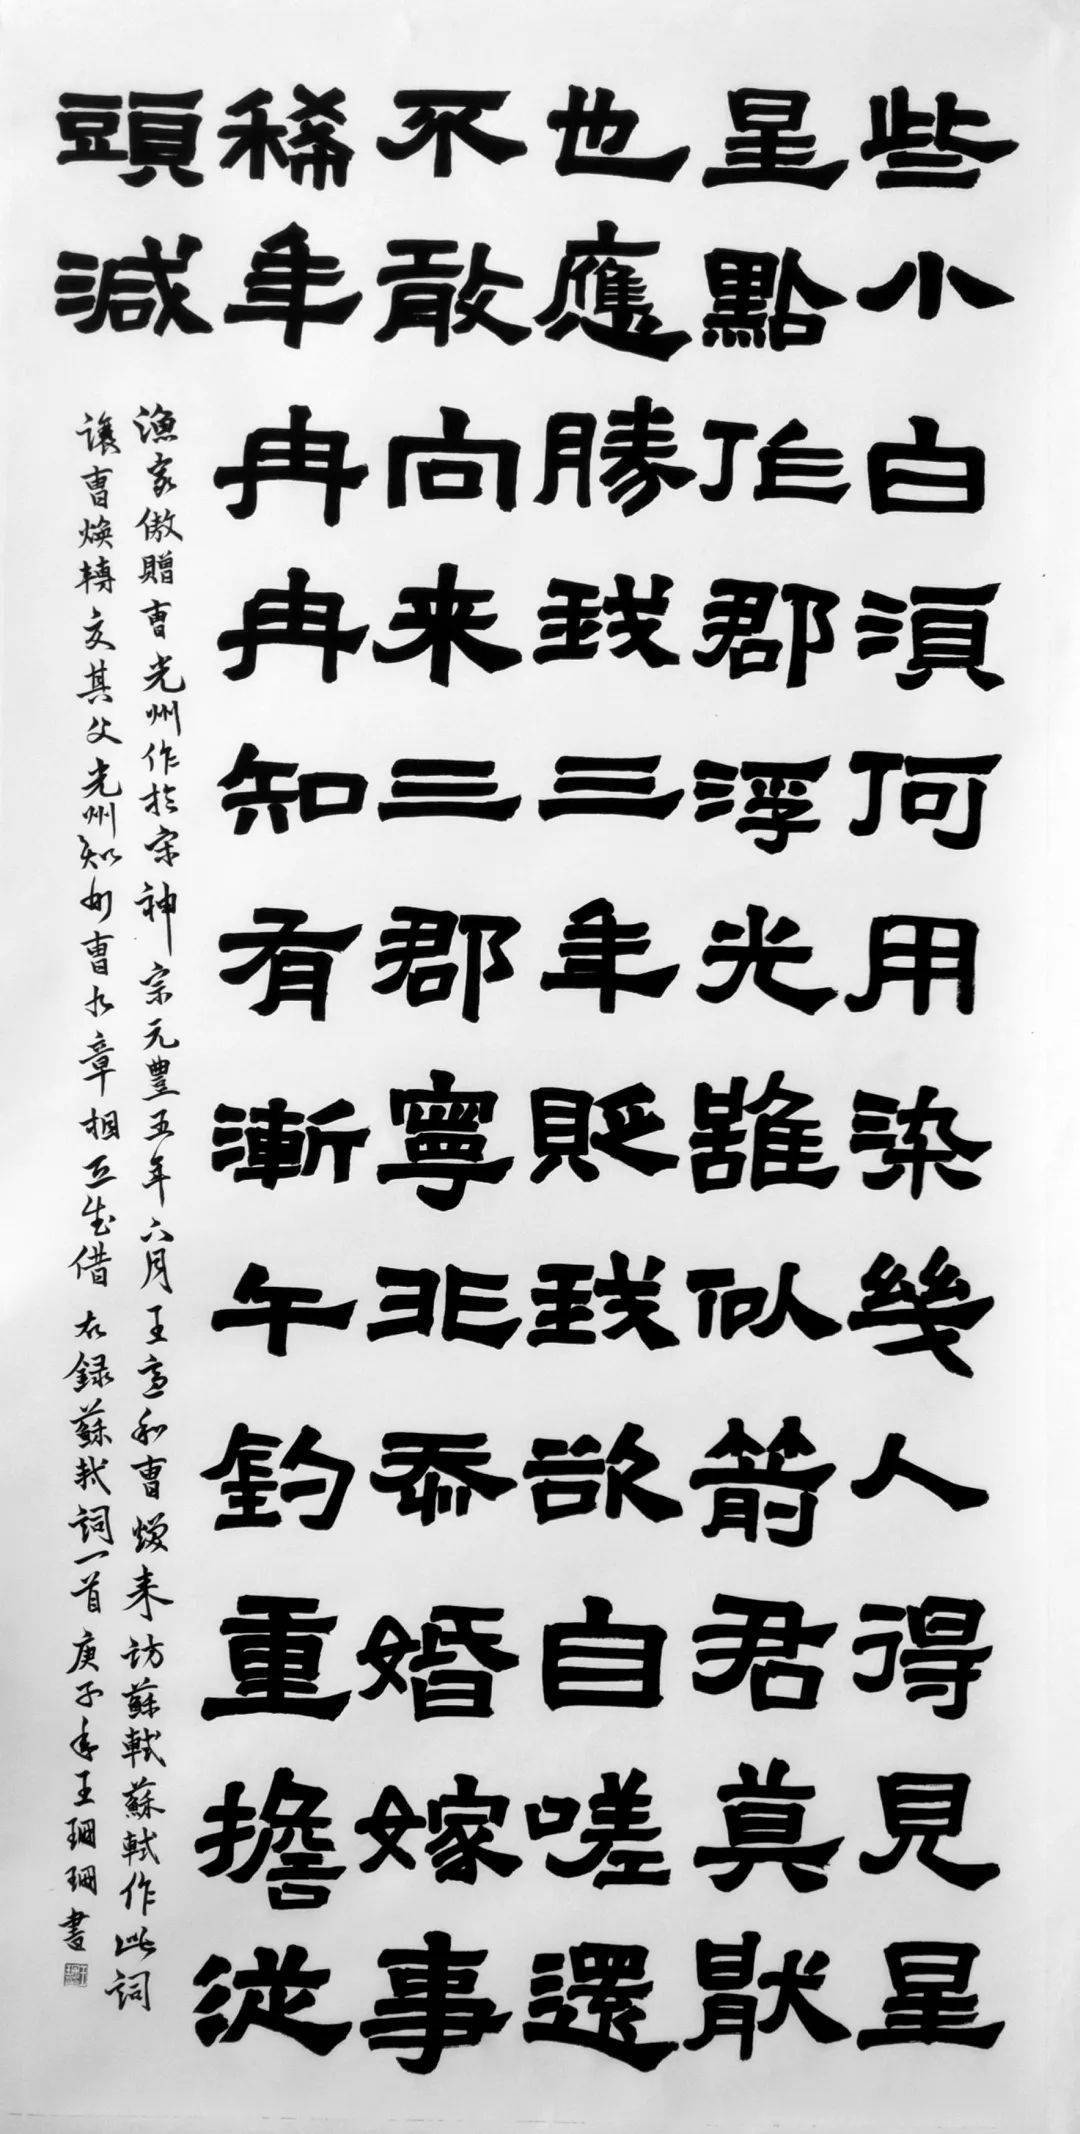 些小白須何用染幾人得見星
星點作郡浮光雖似箭君莫厭
也應勝我三年貶我欲自嗟還
不敢向来三郡寧非忝婚嫁事
稀年冉冉知有漸午鈞重擔從
頭減
漁家傲贈曹光州作於宋神宗元豐五年六月王適和曹煥来訪蘇軾蘇軾作此詞
讓曹煥轉交其父光州知州曹九章相互生借右錄蘇軾詞一首庚子年王珊珊書